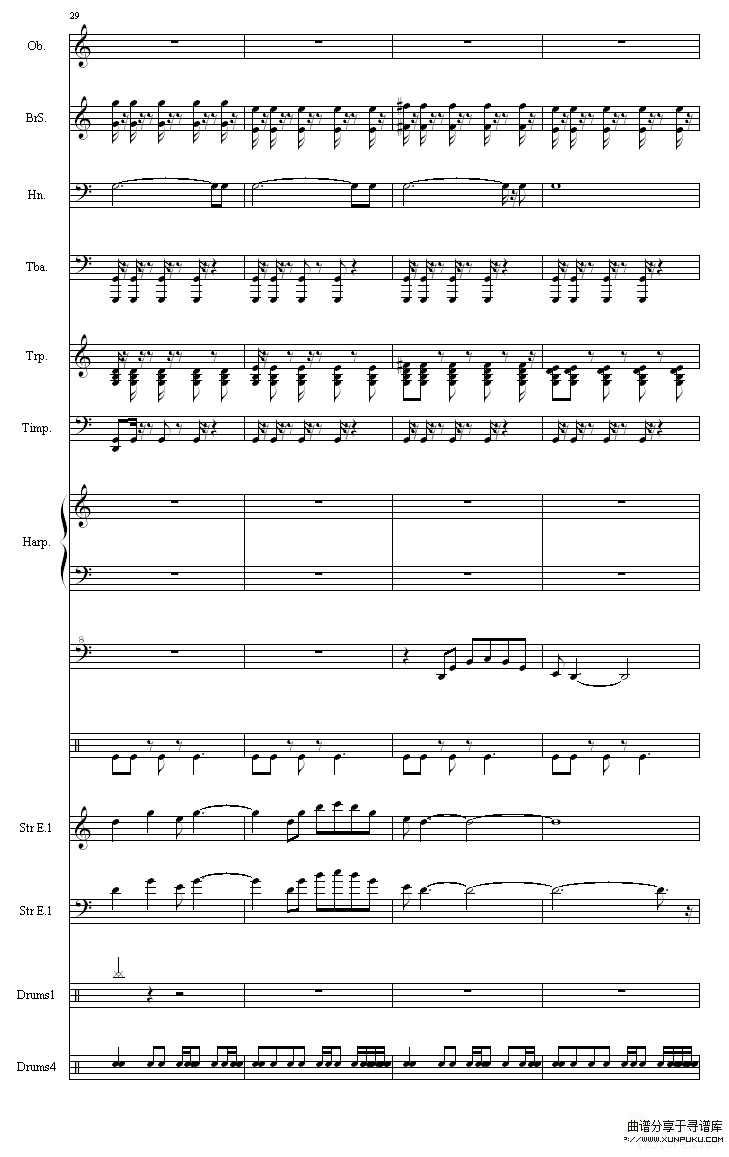 29
Ob.
BrS.
Hn.
Tba.
Trp.
Timp.
Harp.
8
Str E.1
Str E.1
Drums1
Drums4
曲谱分享于寻谱库
http://www.xunpuku.com